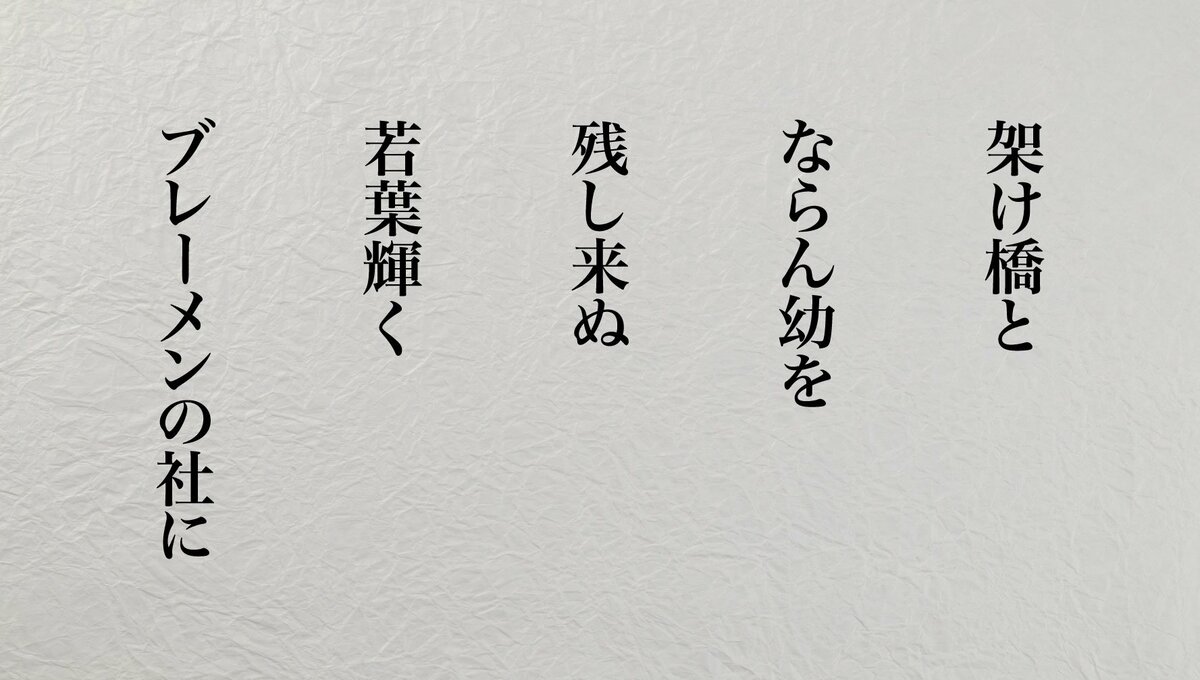 架け橋と
ならん幼を
残し来ぬ
若葉輝く
ブレーメンの社に